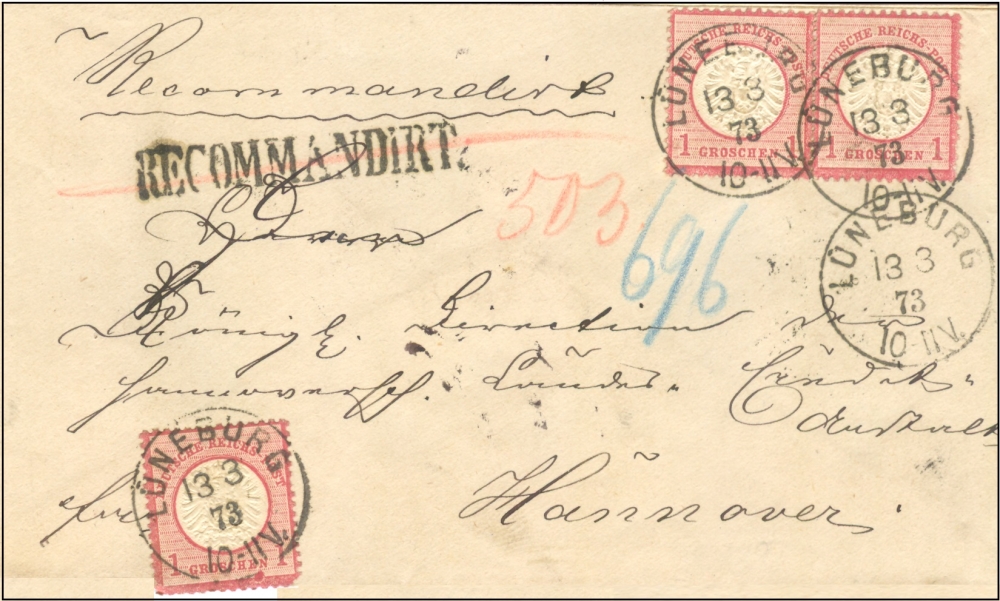 Recommandirt
RECOMMANDIRT.
DEUTSCHE REICHS-POST
1 GROSCHEN 1
DEUTSCHE REICHS-POST
1 GROSCHEN 1
LÜNEBURG
13 3
73
10-11V.
LÜNEBURG
13 3
73
10-11V.
503
696
LÜNEBURG
13 3
73
10-11V.
Königl. Direction der
hannoversch. Landes- Credit-
Anstalt
Hannover.
DEUTSCHE REICHS-POST
1 GROSCHEN 1
LÜNEBURG
13 3
73
10-11V.